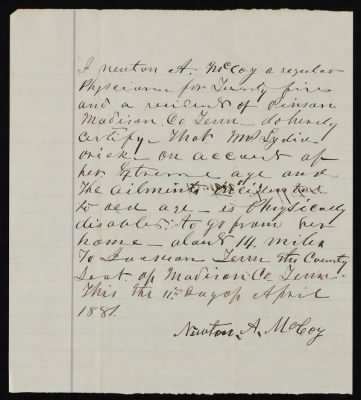 I newton A. McCoy a regular
Physician for Twenty five
and a resident of Pinson
Madison Co Tenn - do hereby
certify - That Mrs Lydia
on account of
her Extreme age and
The ailments incidental
to old age - is Physically
disabled to go from her
home - about 14 miles
To Jackson Tenn the County
Seat of Madison Co Tenn -
This the 11th Day of April
1881
Newton. A. McCoy